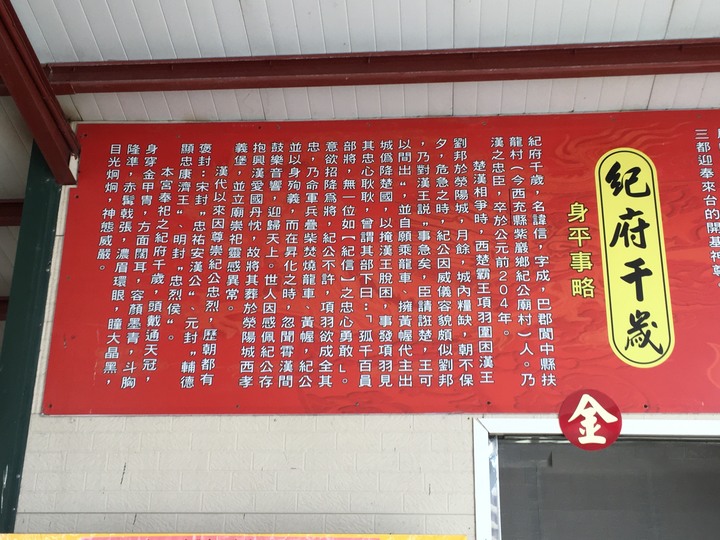 三都迎奉來台的開基神尊
紀府千歲
身平事略
紀府千歲，名諱信，字成，巴郡閬中縣扶
龍村（今西充縣紫巖鄉紀公廟村）人。乃
漢之忠臣，卒於公元前204年。
楚漢相爭時，西楚霸王項羽圍困漢王
劉邦於滎陽城，月餘，城內糧缺，朝不保
夕，危急之時，紀公因威儀容貌頗似劉邦
，乃對漢王說"事急矣，臣請誑楚，王可
以間出"，並自願乘龍車、擁黃幄代主出
城僞降楚國，以掩漢王脫困，事發項羽見
其忠心耿耿，曾謂其部下曰：『孤千百員
部將，無一位如【紀信】之忠心勇敢』。
意欲招降爲將，紀公不許，項羽欲成全其
忠，乃命軍兵疊柴焚燒龍車、黃幄，紀公
並以身殉義，而在昇化之時，忽聞霄漢間
鼓樂音響，迎歸天上。世人因感佩紀公存
抱興漢愛國丹忱，故將其葬於滎陽城西孝
義堡，並立廟崇祀靈感異常。
漢代以來因尊崇紀公忠烈，歷朝都有
褒封：宋封"忠祐安漢公"、元封"輔德
顯忠康濟王"、明封"忠烈侯"。
本宮奉祀之紀府千歲，頭戴通天冠，
身穿金甲冑，方面闊耳，容顏墨青，斗胸
隆準，赤髯戟張，濃眉環眼，瞳大晶黑，
目光炯炯，神態威嚴。
金